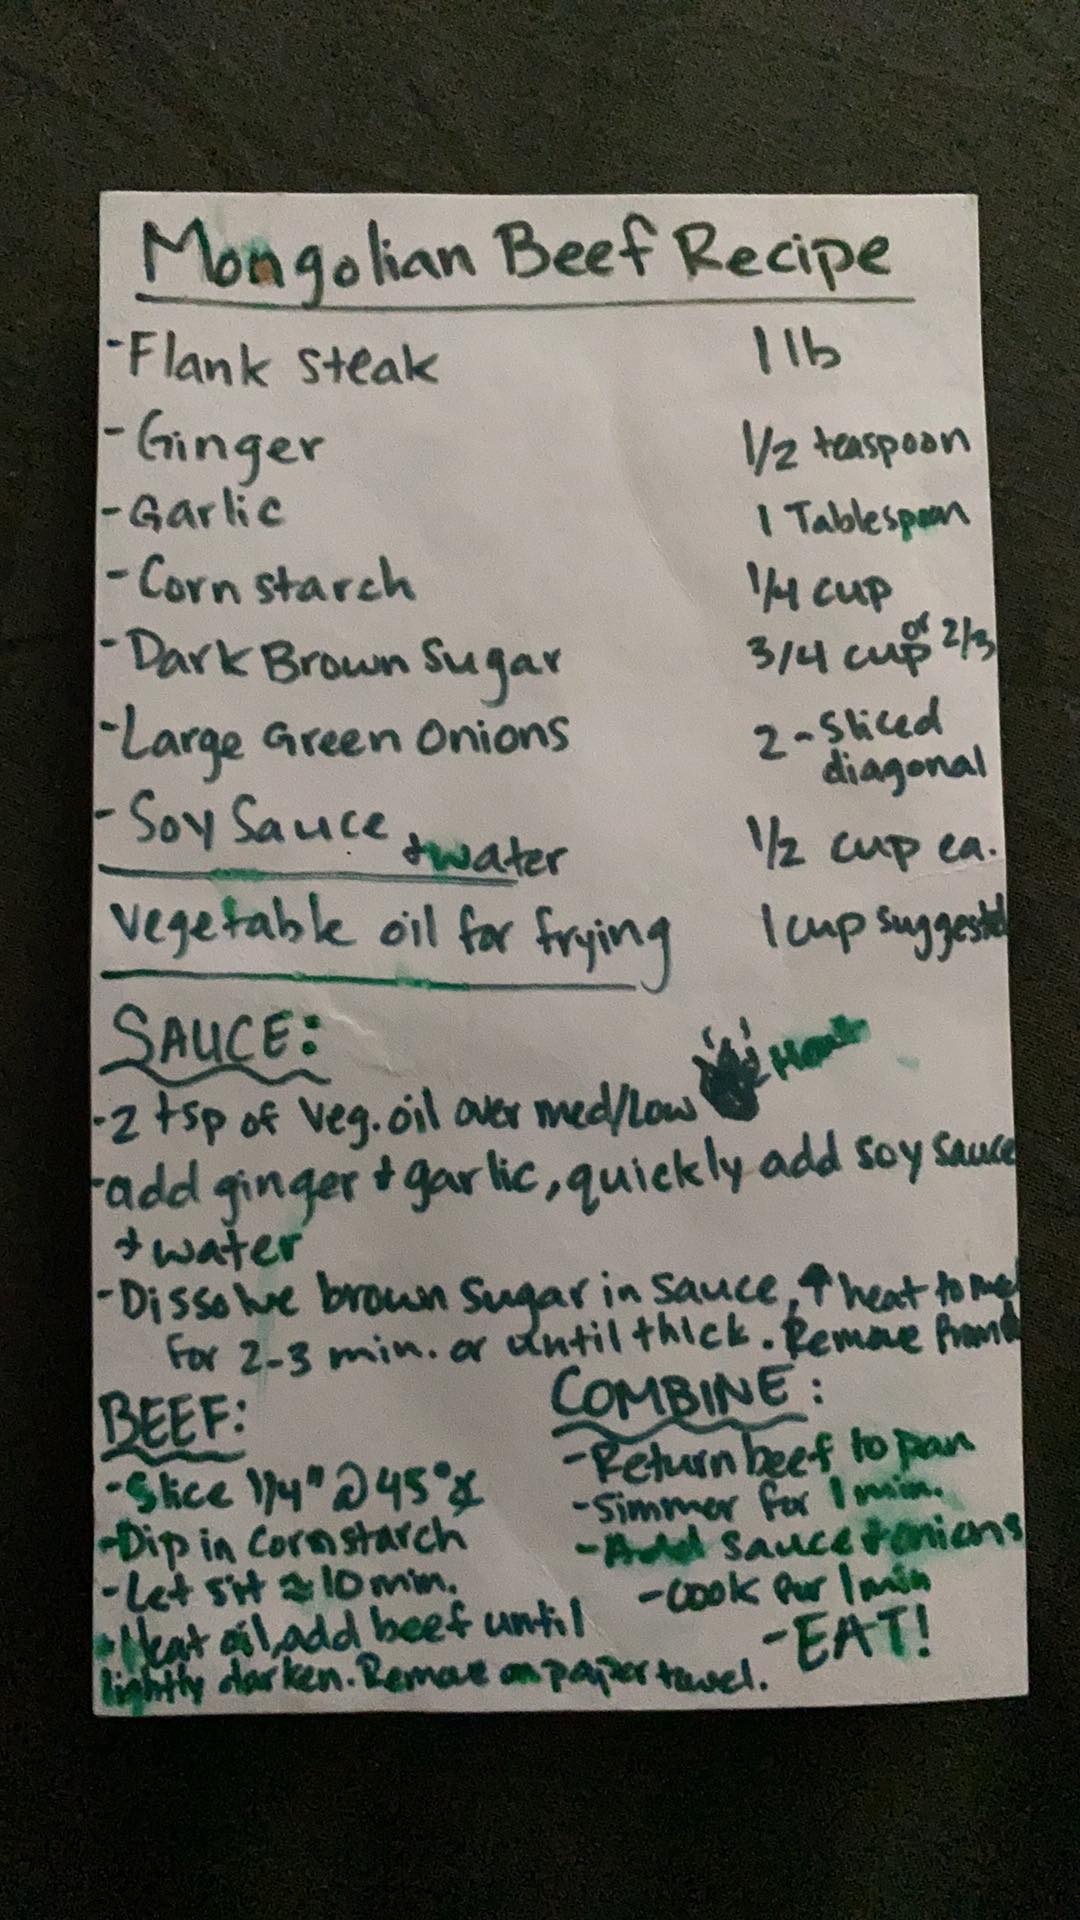 Mongolian Beef Recipe
- Flank steak 1 lb
- Ginger 1/2 teaspoon
- Garlic 1 Tablespoon
- Corn starch 1/4 cup
- Dark Brown Sugar 3/4 cup or 2/3
- Large Green Onions 2 - Sliced diagonal
- Soy Sauce + water 1/2 cup ea.
Vegetable oil for frying 1 cup suggested
SAUCE:
- 2 tsp of Veg. oil over med/low
- add ginger + garlic, quickly add soy sauce
+ water
- Dissolve brown sugar in sauce, ↑ heat to med
For 2-3 min. or until thick. Remove from
BEEF:
- Slice 1/4" @ 45° ∡
- Dip in Cornstarch
- Let sit ≈ 10 min.
- Heat oil, add beef until
lightly darken. Remove on paper towel.
COMBINE:
- Return beef to pan
- Simmer for 1 min.
- Add sauce + onions
- Cook for 1 min
- EAT!